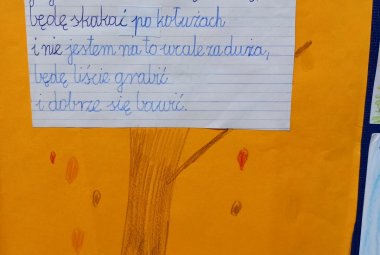 będę skakać po kołużach
i nie jestem na to wcale za duża,
będę liście grabić
i dobrze się bawić.